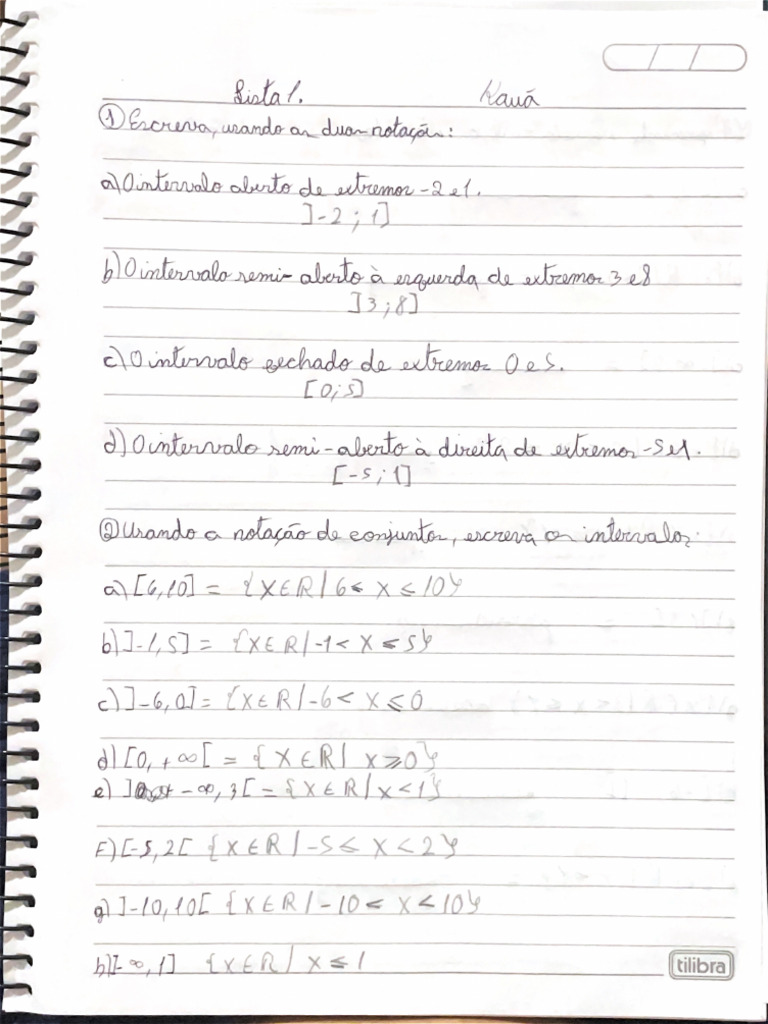 Lista 1. Kauã
① Escreva, usando as duas notação:
a) O intervalo aberto de extremos -2 e 1.
]-2 ; 1]
b) O intervalo semi-aberto à esquerda de extremos 3 e 8
]3 ; 8]
c) O intervalo fechado de extremos 0 e 5.
[0 ; 5]
d) O intervalo semi-aberto à direita de extremos -5 e 1.
[-5 ; 1]
② Usando a notação de conjuntos, escreva os intervalos:
a) [6,10] = {X∈R/ 6 < X ≤ 10}
b) ]-1,5] = {X∈R/ -1 < X ≤ 5}
c) ]-6,0] = {X∈R/ -6 < X ≤ 0
d) [0, +∞[ = {X∈R/ X ≥ 0}
e) ] -∞, 3[ = {X∈R/ X < 1}
F) [-5,2[ {X∈R/ -5 ≤ X < 2}
g) ]-10,10[ {X∈R/ -10 < X < 10}
h) [-∞,1] {X∈R/ X ≤ 1
tilibra